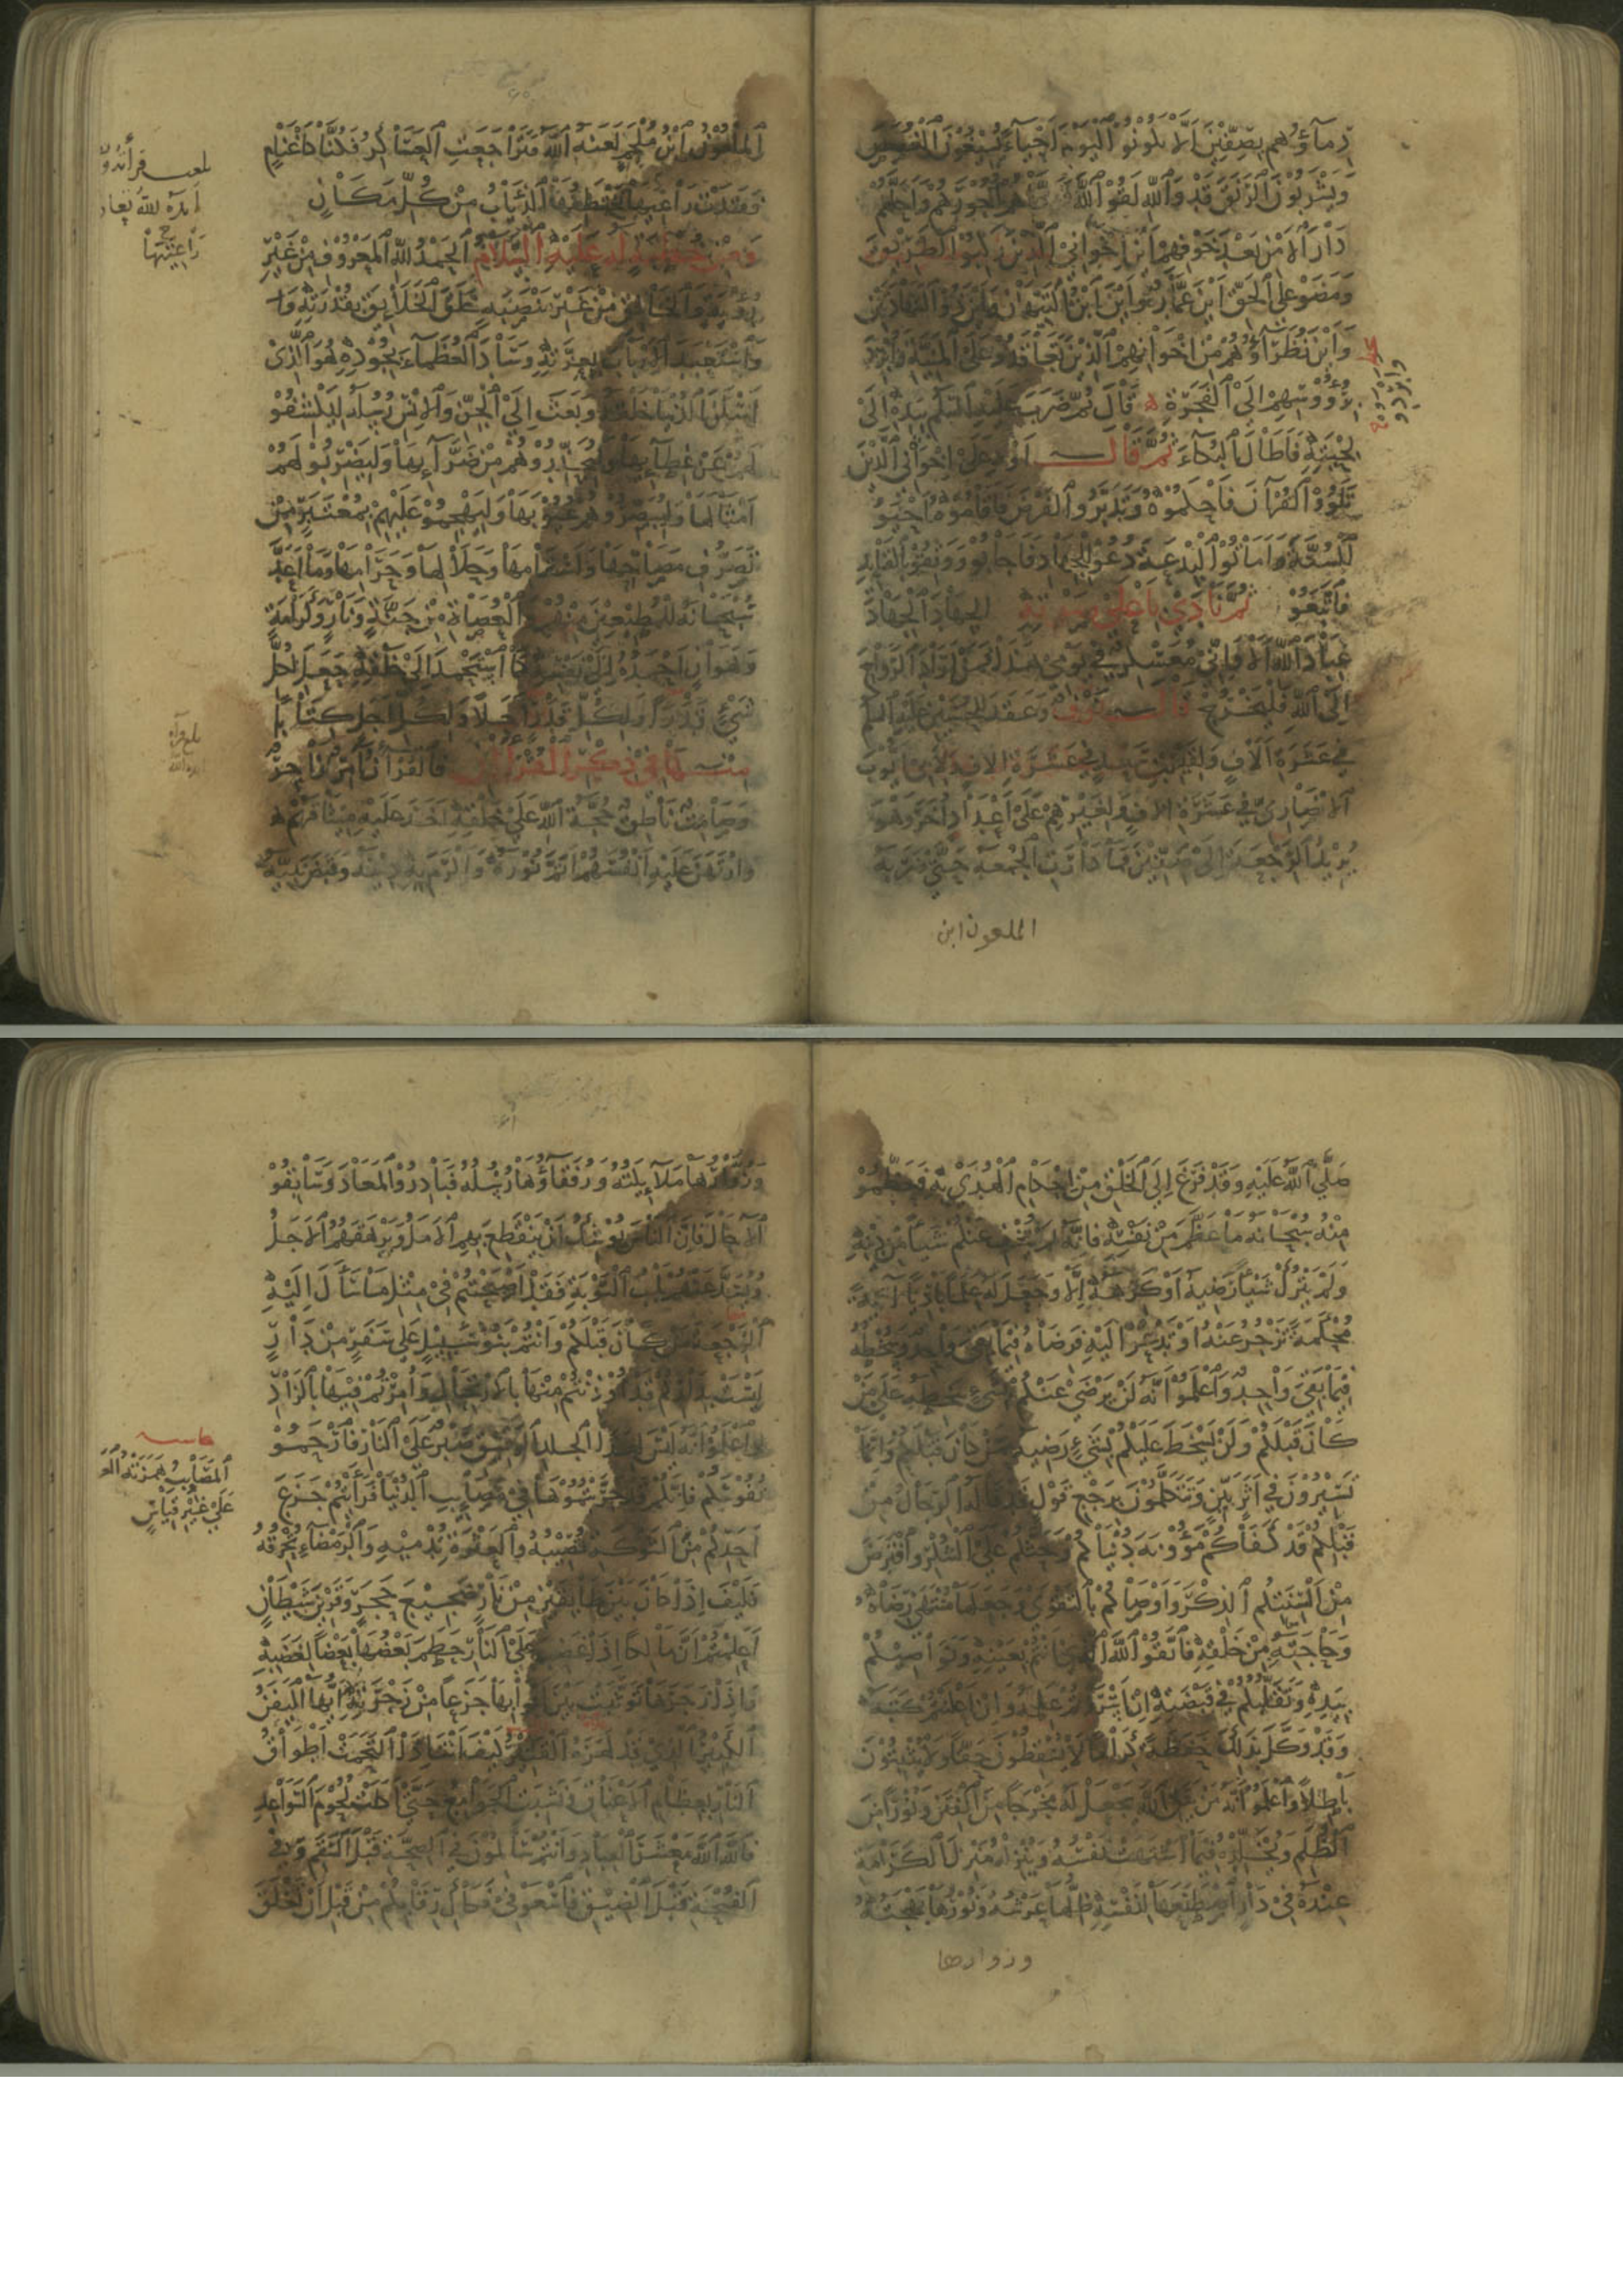 دِمَآؤُهُم بِصِفِّيْنَ اَلَّا يَكُونُوْا اَلْيَوْمَ اَحْيَآءً يُسِيْغُوْنَ الْغُصَصَ
وَيَشْرَبُوْنَ الرَّنْقَ قَدْ وَاللّٰهِ لَقُوا اللّٰهَ فَوَفَّاهُمْ اُجُوْرَهُمْ وَاَحَلَّهُمْ
دَارَ الْاَمْنِ بَعْدَ خَوْفِهِمْ اَيْنَ اِخْوَانِيَ الَّذِيْنَ رَكِبُوا الطَّرِيْقَ
وَمَضَوْا عَلَى الْحَقِّ اَيْنَ عَمَّارٌ وَاَيْنَ ابْنُ التَّيِّهَانِ وَاَيْنَ ذُو الشَّهَادَتَيْنِ
وَاَيْنَ نُظَرَآؤُهُمْ مِنْ اِخْوَانِهِمُ الَّذِيْنَ تَعَاقَدُوْا عَلَى الْمَنِيَّةِ وَاُبْرِدَ
بِرُؤُوْسِهِمْ اِلَى الْفَجَرَةِ قَالَ ثُمَّ ضَرَبَ عَلَيْهِ السَّلَمُ بِيَدِهِ اِلَى
لِحْيَتِهِ فَاَطَالَ الْبُكَاءَ ثُمَّ قَالَ اَوْهِ عَلَى اِخْوَانِي الَّذِيْنَ
تَلَوُا الْقُرْآنَ فَاَحْكَمُوْهُ وَتَدَبَّرُوا الْفَرْضَ فَاَقَامُوْهُ اَحْيَوُا
السُّنَّةَ وَاَمَاتُوا الْبِدْعَةَ دُعُوْا لِلْجِهَادِ فَاَجَابُوْا وَوَثِقُوْا بِالْقَائِدِ
فَاتَّبَعُوْا ثُمَّ نَادَى بِاَعْلَى صَوْتِهِ الْجِهَادَ الْجِهَادَ
عِبَادَ اللّٰهِ اَلَا وَاِنِّي مُعَسْكِرٌ فِي يَوْمِي هٰذَا فَمَنْ اَرَادَ الرَّوَاحَ
اِلَى اللّٰهِ فَلْيَخْرُجْ قَالَ نَوْفٌ وَعَقَدَ لِلْحُسَيْنِ عَلَيْهِ السَّلَمُ
فِي عَشَرَةِ آلَافٍ وَلِقَيْسِ بْنِ سَعْدٍ فِي عَشَرَةِ آلَافٍ وَلِاَبِي اَيُّوْبَ
الْاَنْصَارِيِّ فِي عَشَرَةِ آلَافٍ وَلِغَيْرِهِمْ عَلَى اَعْدَادٍ اُخَرَ وَهُوَ
يُرِيْدُ الرَّجْعَةَ اِلَى صِفِّيْنَ فَمَا دَارَتِ الْجُمْعَةُ حَتَّى ضَرَبَهُ
الملعون ابن
اَلْمَلْعُوْنُ ابْنُ مُلْجَمٍ لَعَنَهُ اللّٰهُ فَتَرَاجَعَتِ الْعَسَاكِرُ فَكُنَّا كَاَغْنَامٍ
فَقَدَتْ رَاعِيَهَا تَخْتَطِفُهَا الذِّئَابُ مِنْ كُلِّ مَكَانٍ
وَمِنْ خُطْبَةٍ لَهُ عَلَيْهِ السَّلَامُ اَلْحَمْدُ لِلّٰهِ الْمَعْرُوْفِ مِنْ غَيْرِ
رُؤْيَةٍ وَالْخَالِقِ مِنْ غَيْرِ مَنْصَبَةٍ خَلَقَ الْخَلَائِقَ بِقُدْرَتِهِ
وَاسْتَعْبَدَ الْاَرْبَابَ بِعِزَّتِهِ وَسَادَ الْعُظَمَآءَ بِجُوْدِهِ هُوَ الَّذِيْ
اَسْكَنَ الدُّنْيَا خَلْقَهُ وَبَعَثَ اِلَى الْجِنِّ وَالْاِنْسِ رُسُلَهُ لِيَكْشِفُوْا
لَهُمْ عَنْ غِطَآئِهَا وَلِيُحَذِّرُوْهُمْ مِنْ ضَرَّآئِهَا وَلِيَضْرِبُوْا لَهُمْ
اَمْثَالَهَا وَلِيُبَصِّرُوْهُمْ عُيُوْبَهَا وَلِيَهْجُمُوْا عَلَيْهِمْ بِمُعْتَبَرٍ مِنْ
تَصَرُّفِ مَصَاحِّهَا وَاَسْقَامِهَا وَحَلَالِهَا وَحَرَامِهَا وَمَا اَعَدَّ
سُبْحَانَهُ لِلْمُطِيْعِيْنَ مِنْهُمْ وَالْعُصَاةِ مِنْ جَنَّةٍ وَنَارٍ وَكَرَامَةٍ
وَهَوَانٍ اَحْمَدُهُ اِلَى نَفْسِهِ كَمَا اسْتَحْمَدَ اِلَى خَلْقِهِ جَعَلَ لِكُلِّ
شَيْءٍ قَدْرًا وَلِكُلِّ قَدْرٍ اَجَلًا وَلِكُلِّ اَجَلٍ كِتَابًا
مِنْهَا فِي ذِكْرِ الْقُرْآنِ فَالْقُرْآنُ آمِرٌ زَاجِرٌ
وَصَامِتٌ نَاطِقٌ حُجَّةُ اللّٰهِ عَلَى خَلْقِهِ اَخَذَ عَلَيْهِ مِيْثَاقَهُمْ
وَارْتَهَنَ عَلَيْهِ اَنْفُسَهُمْ اَتَمَّ نُوْرَهُ وَاَكْرَمَ بِهِ دِيْنَهُ وَقَبَضَ نَبِيَّهُ
رَاعِيَتَهَا
صَلَّى اللّٰهُ عَلَيْهِ وَقَدْ فَرَغَ اِلَى الْخَلْقِ مِنْ اَحْكَامِ الْهُدَى بِهِ فَعَظِّمُوْا
مِنْهُ سُبْحَانَهُ مَا عَظَّمَ مِنْ نَفْسِهِ فَاِنَّهُ لَمْ يُخْفِ عَنْكُمْ شَيْئًا مِنْ دِيْنِهِ
وَلَمْ يَتْرُكْ شَيْئًا رَضِيَهُ اَوْ كَرِهَهُ اِلَّا وَجَعَلَ لَهُ عَلَمًا بَادِيًا وَآيَةً
مُحْكَمَةً تَزْجُرُ عَنْهُ اَوْ تَدْعُوْا اِلَيْهِ فَرِضَاهُ فِيْمَا بَقِيَ وَاحِدٌ وَسَخَطُهُ
فِيْمَا بَقِيَ وَاحِدٌ وَاعْلَمُوْا اَنَّهُ لَنْ يَرْضَى عَنْكُمْ بِشَيْءٍ سَخِطَهُ عَلَى مَنْ
كَانَ قَبْلَكُمْ وَلَنْ يَسْخَطَ عَلَيْكُمْ بِشَيْءٍ رَضِيَهُ مِمَّنْ كَانَ قَبْلَكُمْ وَاِنَّمَا
تَسِيْرُوْنَ فِي اَثَرٍ بَيِّنٍ وَتَتَكَلَّمُوْنَ بِرَجْعِ قَوْلٍ قَدْ قَالَهُ الرِّجَالُ مِنْ
قَبْلِكُمْ قَدْ كَفَاكُمْ مَؤُوْنَةَ دُنْيَاكُمْ وَحَثَّكُمْ عَلَى الشُّكْرِ وَافْتَرَضَ
مِنْ اَلْسِنَتِكُمُ الذِّكْرَ وَاَوْصَاكُمْ بِالتَّقْوَى وَجَعَلَهَا مُنْتَهَى رِضَاهُ
وَحَاجَتَهُ مِنْ خَلْقِهِ فَاتَّقُوا اللّٰهَ الَّذِي اَنْتُمْ بِعَيْنِهِ وَنَوَاصِيْكُمْ
بِيَدِهِ وَتَقَلُّبُكُمْ فِي قَبْضَتِهِ اِنْ اَسْرَرْتُمْ عَلِمَهُ وَاِنْ اَعْلَنْتُمْ كَتَبَهُ
وَقَدْ وَكَّلَ بِذٰلِكَ حَفَظَةً كِرَامًا لَا يُسْقِطُوْنَ حَقًّا وَلَا يُثْبِتُوْنَ
بَاطِلًا وَاعْلَمُوْا اَنَّهُ مَنْ يَتَّقِ اللّٰهَ يَجْعَلْ لَهُ مَخْرَجًا مِنَ الْفِتَنِ وَنُوْرًا مِنَ
الظُّلَمِ وَيُخَلِّدْهُ فِيْمَا اشْتَهَتْ نَفْسُهُ وَيُنْزِلْهُ مَنْزِلَ الْكَرَامَةِ
عِنْدَهُ فِيْ دَارٍ اصْطَنَعَهَا لِنَفْسِهِ ظِلُّهَا عَرْشُهُ وَنُوْرُهَا بَهْجَتُهُ
وزوارها
وَزُوَّارُهَا مَلَآئِكَتُهُ وَرُفَقَآؤُهَا رُسُلُهُ فَبَادِرُوا الْمَعَادَ وَسَابِقُوْا
الْآجَالَ فَاِنَّ النَّاسَ يُوْشِكُ اَنْ يَنْقَطِعَ بِهِمُ الْاَمَلُ وَيَرْهَقَهُمُ الْاَجَلُ
وَيُسَدَّ عَنْهُمْ بَابُ التَّوْبَةِ فَقَدْ اَصْبَحْتُمْ فِيْ مِثْلِ مَا سَأَلَ اِلَيْهِ
الرَّجْعَةَ مَنْ كَانَ قَبْلَكُمْ وَاَنْتُمْ بَنُوْ سَبِيْلٍ عَلَى سَفَرٍ مِنْ دَارٍ
لَيْسَتْ بِدَارِكُمْ قَدْ اُوْذِنْتُمْ مِنْهَا بِالْاِرْتِحَالِ وَاُمِرْتُمْ فِيْهَا بِالزَّادِ
وَاعْلَمُوْا اَنَّهُ لَيْسَ لِهٰذَا الْجِلْدِ الرَّقِيْقِ صَبْرٌ عَلَى النَّارِ فَارْحَمُوْا
نُفُوْسَكُمْ فَاِنَّكُمْ قَدْ جَرَّبْتُمُوْهَا فِيْ مَصَايِبِ الدُّنْيَا فَرَاَيْتُمْ جَزَعَ
اَحَدِكُمْ مِنَ الشَّوْكَةِ تُصِيْبُهُ وَالْعَثْرَةِ تُدْمِيْهِ وَالرَّمْضَآءِ تُحْرِقُهُ
فَكَيْفَ اِذَا كَانَ بَيْنَ طَابَقَيْنِ مِنْ نَارٍ ضَجِيْعَ حَجَرٍ وَقَرِيْنَ شَيْطَانٍ
اَعَلِمْتُمْ اَنَّ مَالِكًا اِذَا غَضِبَ عَلَى النَّارِ حَطَمَ بَعْضُهَا بَعْضًا لِغَضَبِهِ
وَاِذَا زَجَرَهَا تَوَثَّبَتْ بَيْنَ اَبْوَابِهَا جَزَعًا مِنْ زَجْرَتِهِ اَيُّهَا الْيَفَنُ
الْكَبِيْرُ الَّذِيْ قَدْ لَهَزَهُ الْقَتِيْرُ كَيْفَ اَنْتَ اِذَا الْتَحَمَتْ اَطْوَاقُ
النَّارِ بِعِظَامِ الْاَعْنَاقِ وَنَشِبَتِ الْجَوَامِعُ حَتَّى اَكَلَتْ لُحُوْمَ السَّوَاعِدِ
فَاللّٰهَ اللّٰهَ مَعْشَرَ الْعِبَادِ وَاَنْتُمْ سَالِمُوْنَ فِي الصِّحَّةِ قَبْلَ السَّقَمِ وَفِي
الْفُسْحَةِ قَبْلَ الضِّيْقِ فَاسْعَوْا فِيْ فَكَاكِ رِقَابِكُمْ مِنْ قَبْلِ اَنْ تُغْلَقَ
اَلْمَصَايِبُ هَمْزَتُهُ
عَلَى غَيْرِ قِيَاسٍ